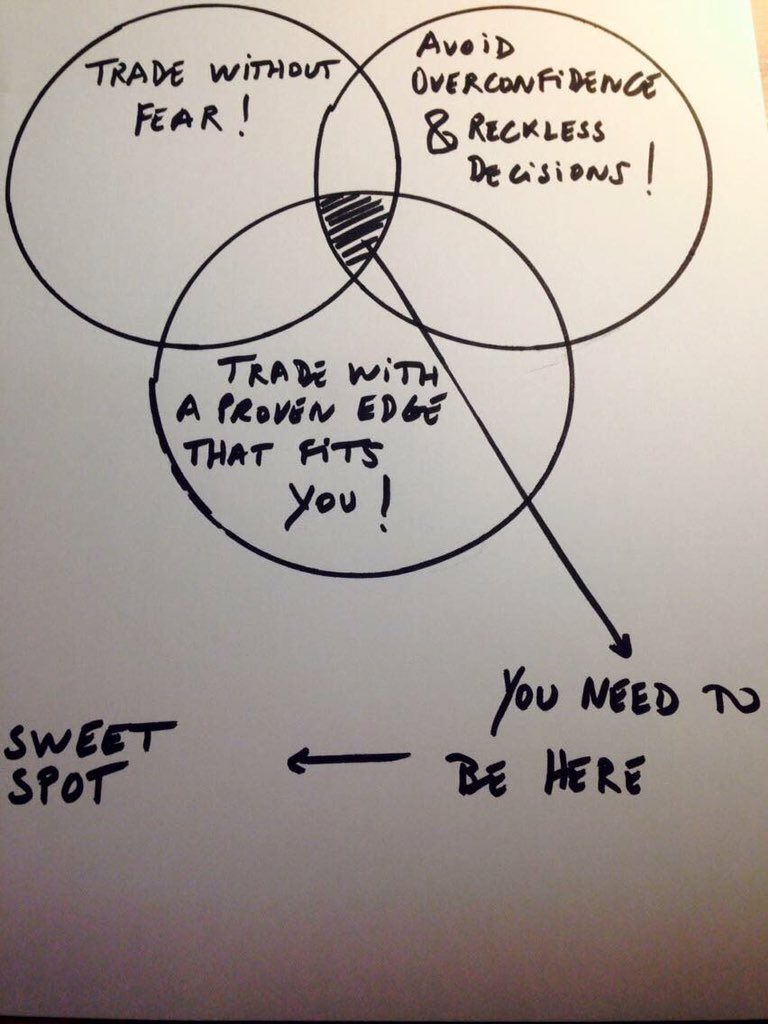 TRADE WITHOUT
FEAR!
AVOID
OVERCONFIDENCE
& RECKLESS
DECISIONS!
TRADE WITH
A PROVEN EDGE
THAT FITS
YOU!
YOU NEED TO
BE HERE
SWEET
SPOT